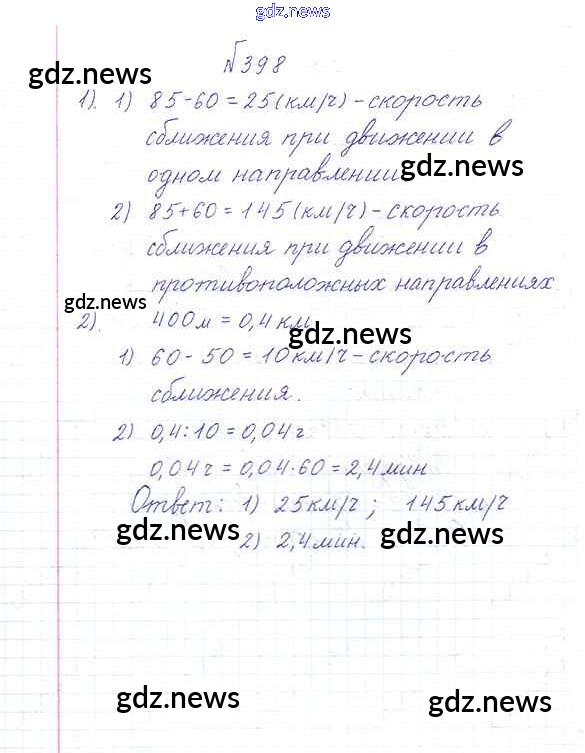 gdz.news
№398
gdz.news
1). 1) 85-60=25(км/ч)-скорость
сближения при движении в
одном направлении gdz.news
2) 85+60=145(км/ч)-скорость
сближения при движении в
противоположных направлениях
gdz.news
2). 400м = 0,4 км
gdz.news
1) 60-50=10км/ч-скорость
сближения.
2) 0,4:10=0,04г
0,04ч=0,04·60=2,4мин
Ответ: 1) 25км/ч; 145км/ч
gdz.news gdz.news
2) 2,4мин.
gdz.news gdz.news